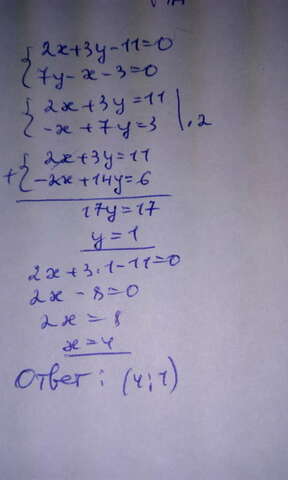 2x+3y-11=0
7y-x-3=0
2x+3y=11
-x+7y=3 |·2
+ 2x+3y=11
-2x+14y=6
17y=17
y=1
2x+3·1-11=0
2x-8=0
2x=8
x=4
Ответ: (4;1)